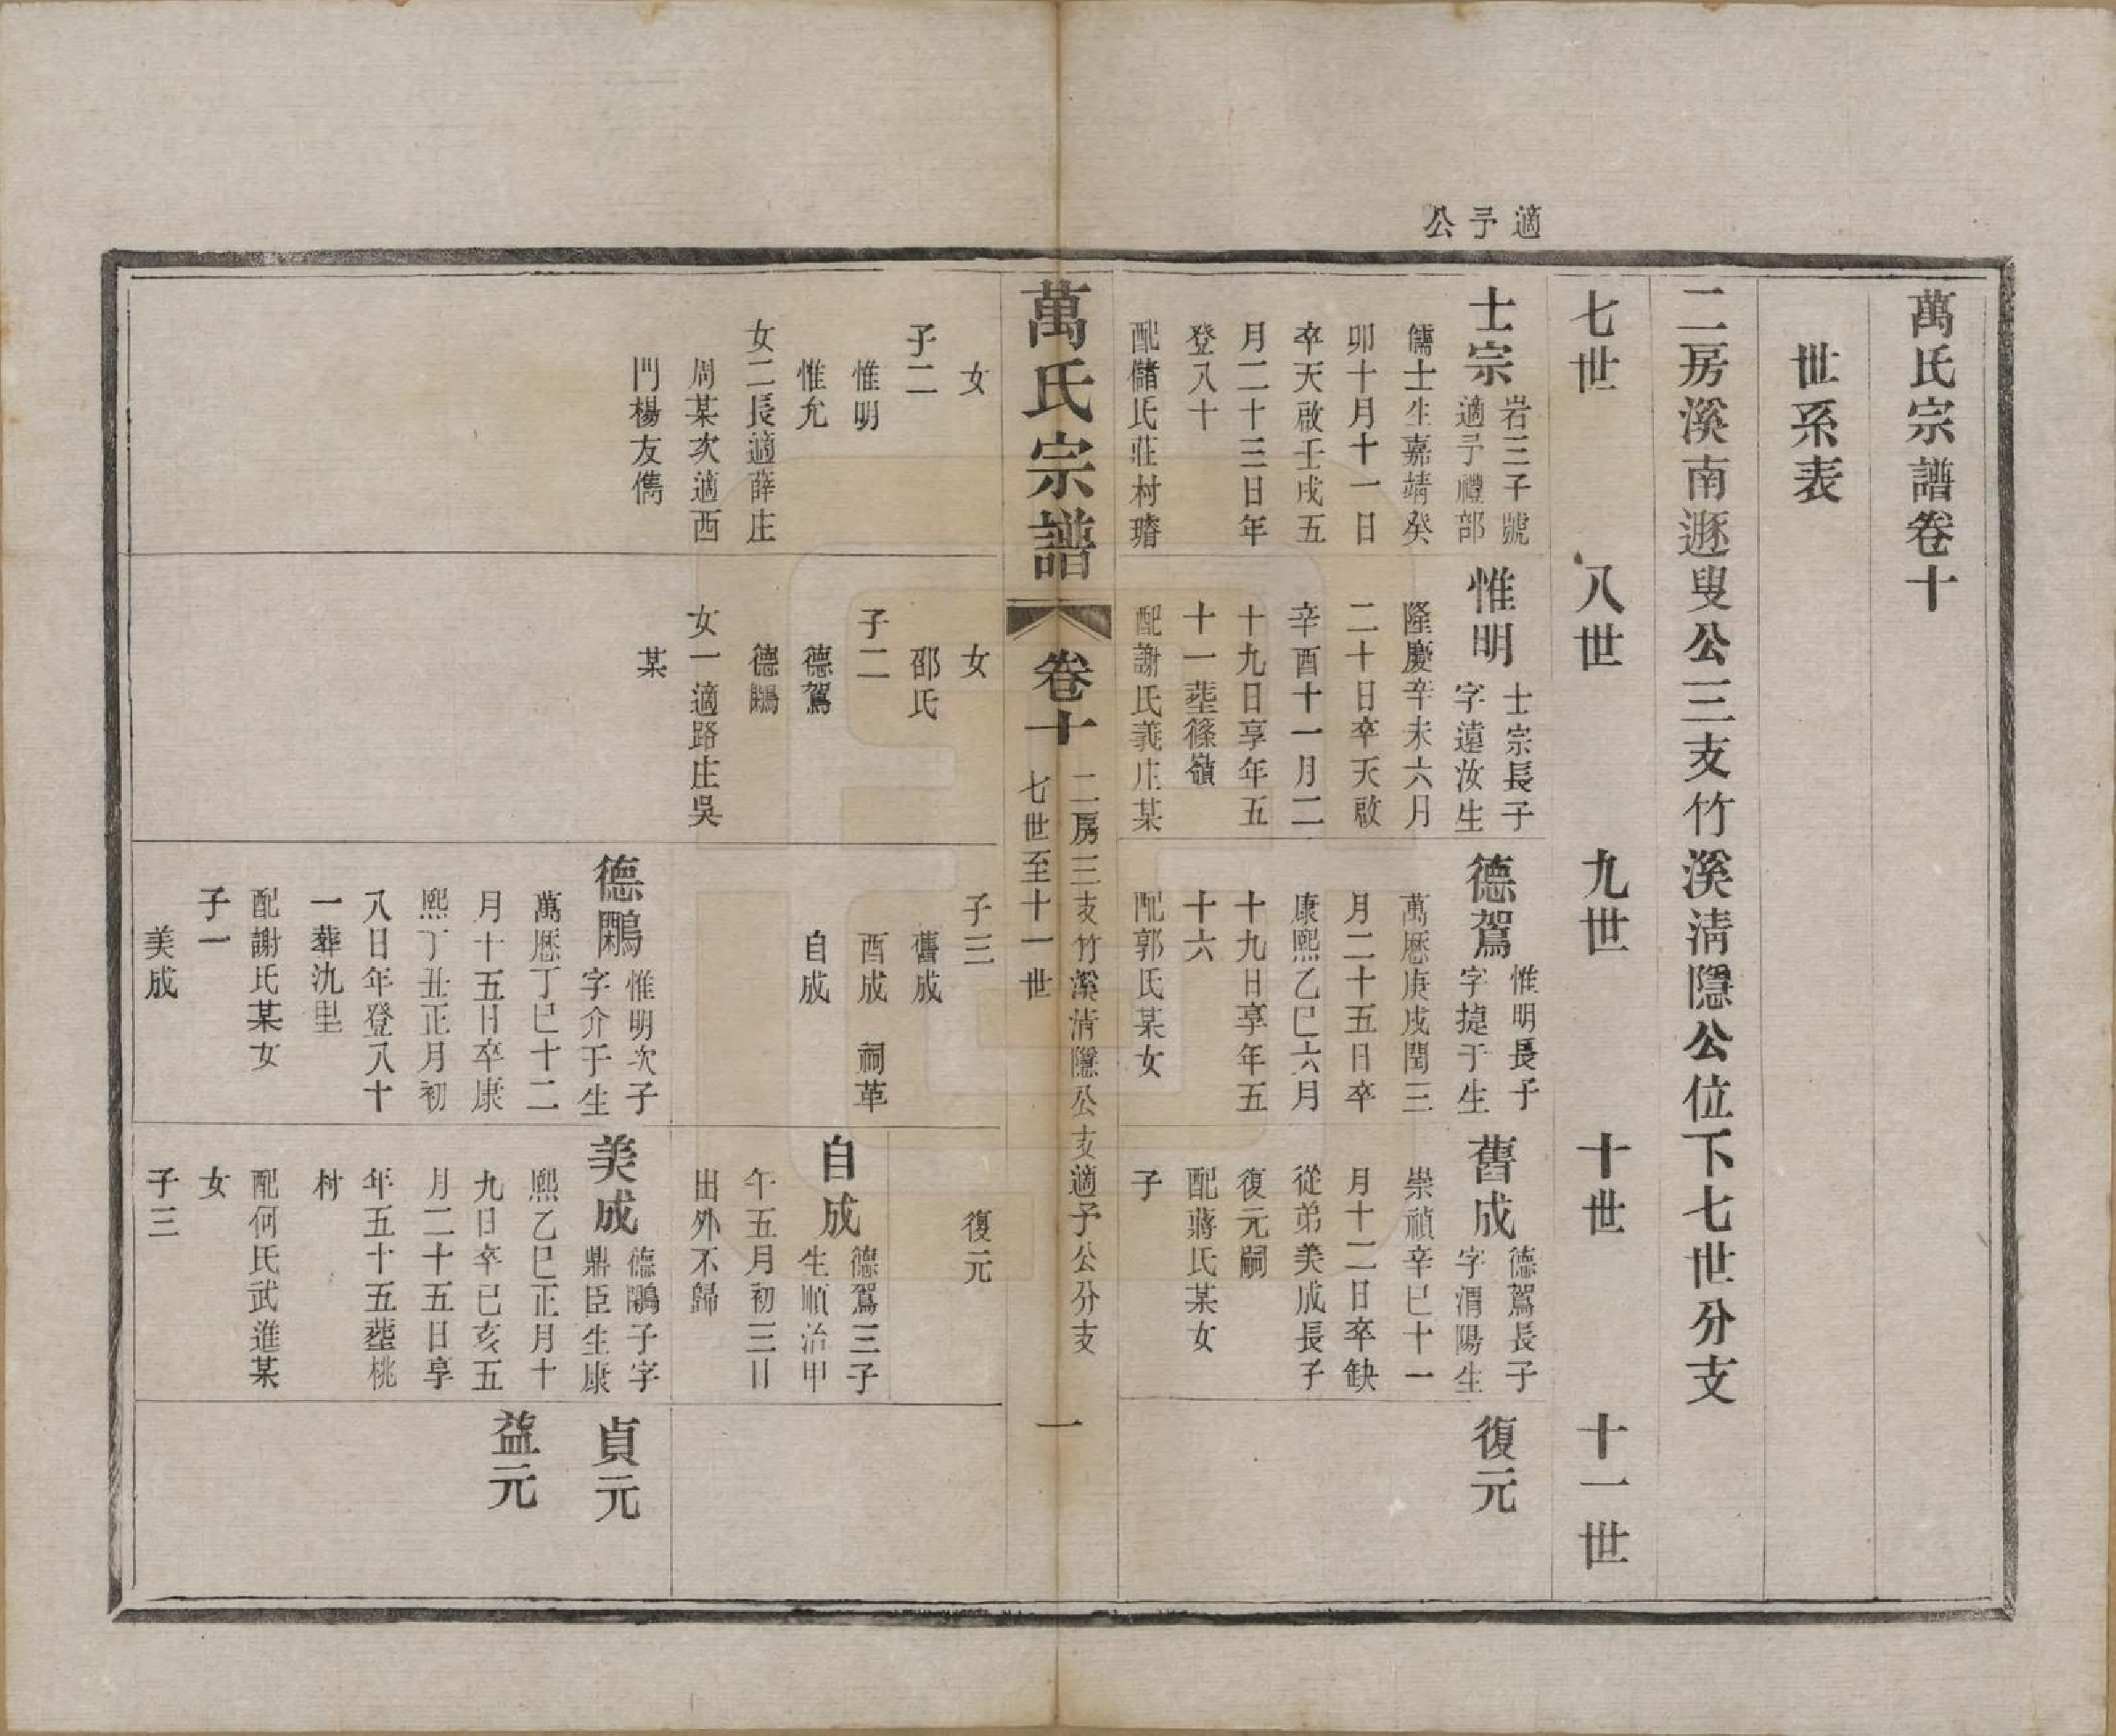 適予公
萬氏宗譜卷十
世系表
二房溪南遯叟公三支竹溪清隱公位下七世分支
七世
八世
九世
十世
十一世
士宗
岩三子號
適予禮部
儒士生嘉靖癸
卯十月十一日
卒天啟壬戌五
月二十三日年
登八十
配儲氏莊村瑃
女
子二
惟明
惟允
女二長適薛庄
周某次適西
門楊友儁
惟明
士宗長子
字遠汝生
隆慶辛未六月
二十日卒天啟
辛酉十一月二
十九日享年五
十一塟篠嶺
配謝氏義庄某
女
邵氏
子二
德駕
德鵰
女一適路庄吳
某
德駕
惟明長子
字搷于生
萬厯庚戌閏三
月二十五日卒
康熙乙巳六月
十九日享年五
十六
配郭氏某女
子三
舊成
酉成 祠革
自成
德鵰
惟明次子
字介于生
萬厯丁巳十二
月十五日卒康
熙丁丑正月初
八日年登八十
一葬氿里
配謝氏某女
子一
美成
舊成
德駕長子
字渭陽生
崇禎辛巳十一
月十二日卒缺
從弟美成長子
復元嗣
配蔣氏某女
子
復元
自成
德駕三子
生順治甲
午五月初三日
出外不歸
美成
德鵰子字
鼎臣生康
熙乙巳正月十
九日卒己亥五
月二十五日享
年五十五塟桃
村
配何氏武進某
女
子三
復元
貞元
益元
萬氏宗譜
卷十
二房三支竹溪清隱公支適予公分支
七世至十一世
一